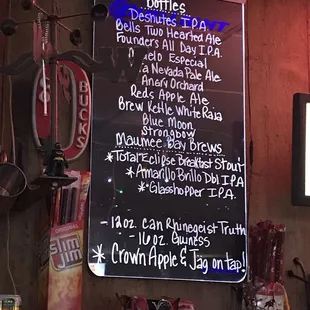 Bottles
Deshutes I.P.A.
Bells Two Hearted Ale
Founders All Day I.P.A.
Especial
Nevada Pale Ale
Angry Orchard
Reds Apple Ale
Brew Kettle White Raja
Blue Moon
Strongbow
Maumee Bay Brews
*Total Eclipse Breakfast Stout
*Amarillo Brillo Dbl IPA
*Glasshopper IPA
-12oz. can Rhinegeist Truth
-16oz. Guiness
* Crown Apple & Jag on tap!
BUCKS
Slim
Jim